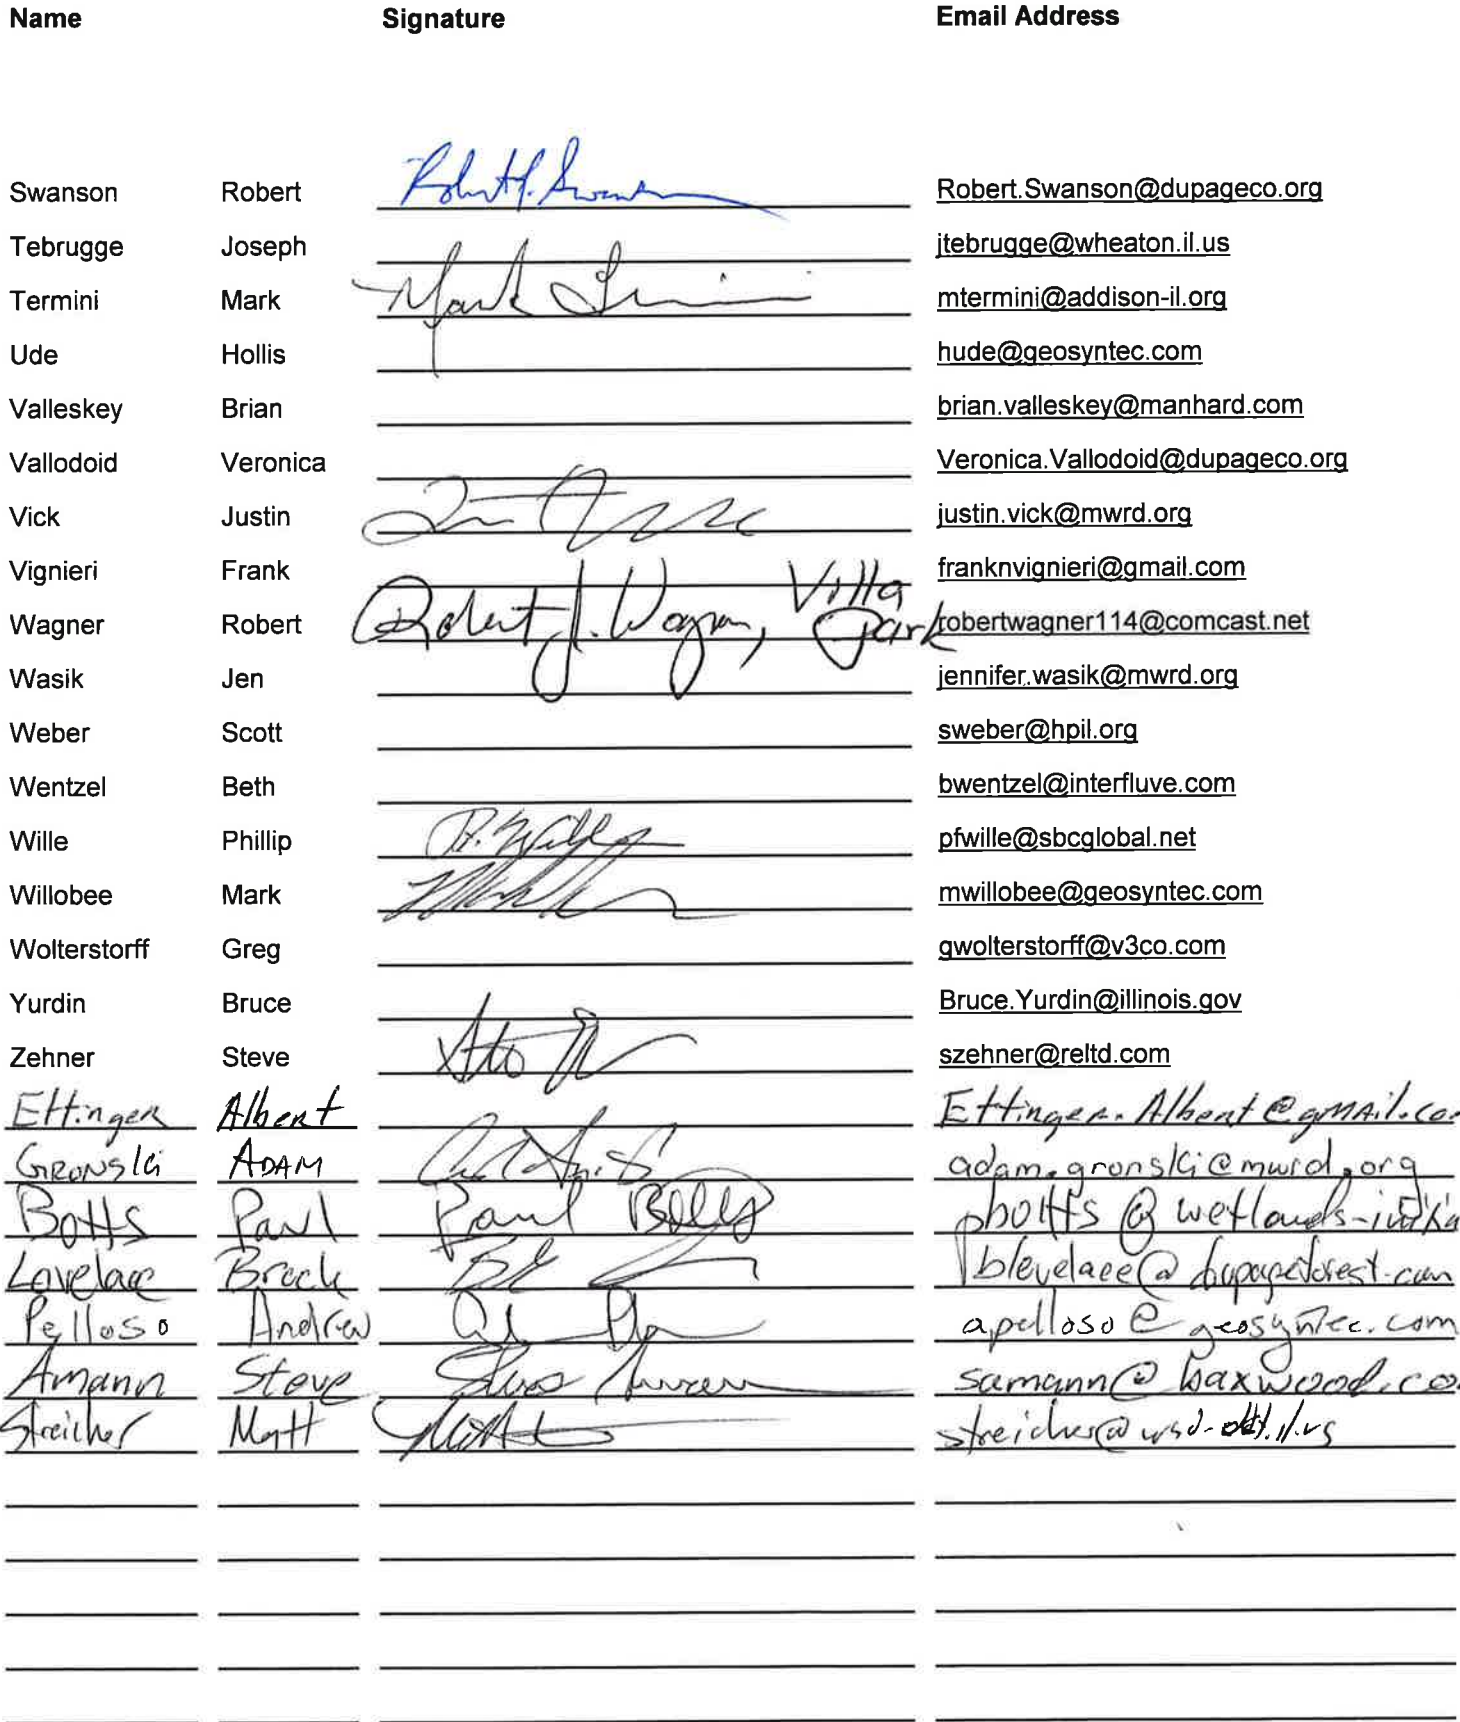 Name Signature Email Address
Swanson Robert Robert J. Swanson Robert.Swanson@dupageco.org
Tebrugge Joseph jtebrugge@wheaton.il.us
Termini Mark Mark Termini mtermini@addison-il.org
Ude Hollis hude@geosyntec.com
Valleskey Brian brian.valleskey@manhard.com
Vallodoid Veronica Veronica.Vallodoid@dupageco.org
Vick Justin justin.vick@mwrd.org
Vignieri Frank franknvignieri@gmail.com
Wagner Robert Robert J. Wagner, Villa Park robertwagner114@comcast.net
Wasik Jen jennifer.wasik@mwrd.org
Weber Scott sweber@hpil.org
Wentzel Beth bwentzel@interfluve.com
Wille Phillip P. Wille pfwille@sbcglobal.net
Willobee Mark mwillobee@geosyntec.com
Wolterstorff Greg gwolterstorff@v3co.com
Yurdin Bruce Bruce.Yurdin@illinois.gov
Zehner Steve szehner@reltd.com
Ettinger Albert Ettinger.Albert@gmail.co
Gronski ADAM adam.gronski@mwrd.org
Botts Paul Paul Botts pbotts@wetlands-
Lovelace Brock
Pelloso Andrew apelloso@geosyntec.com
Amann Steve Steve Amann samann@baxwood.co
Streicher Matt